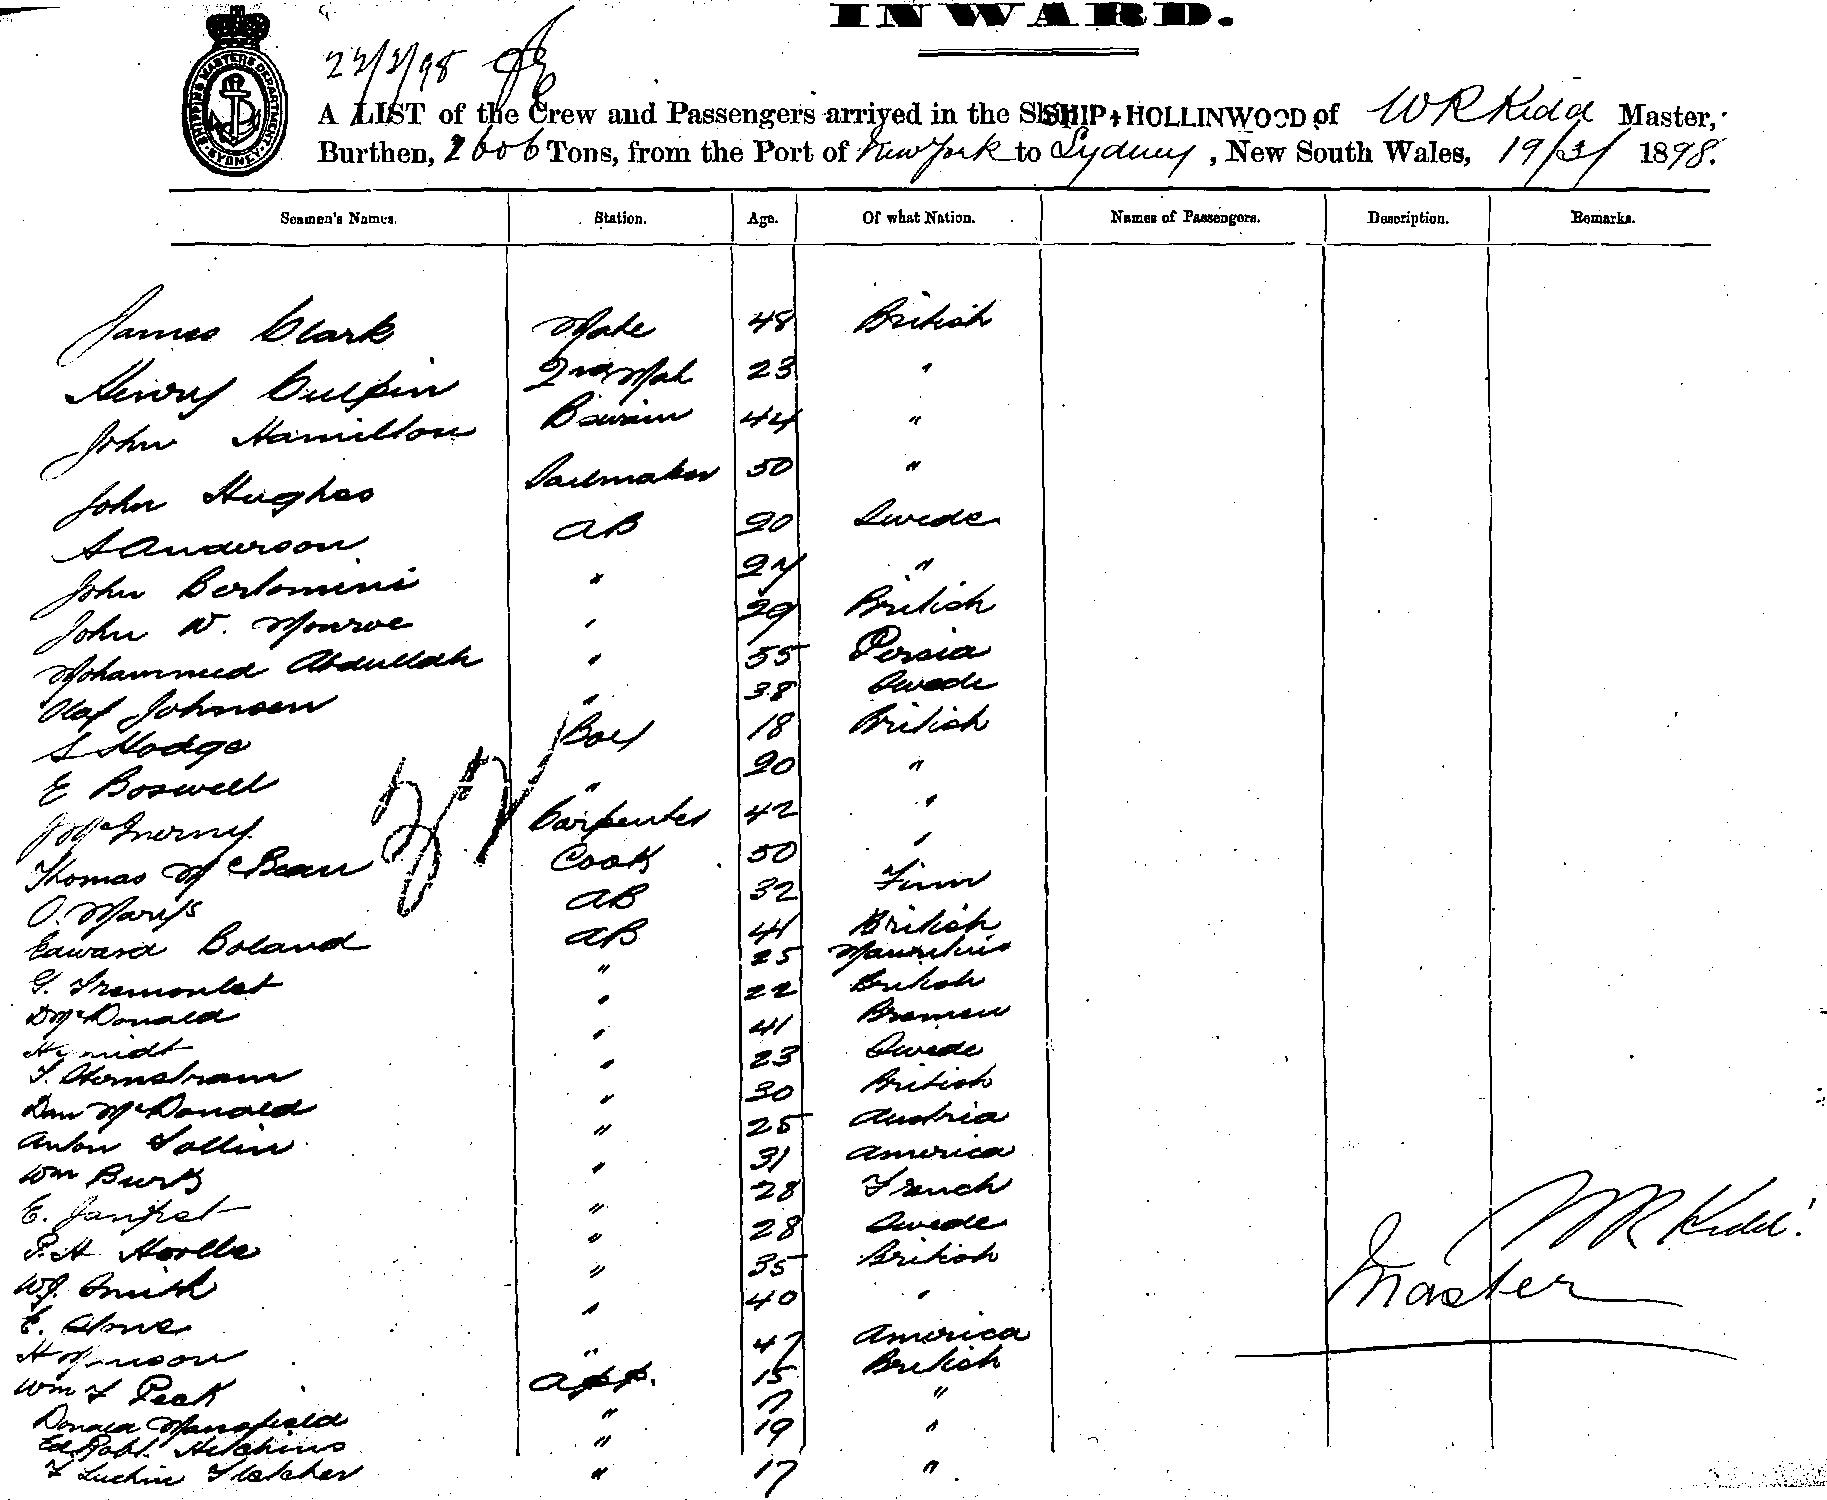 INWARD.
SHIPPING MASTERS DEPARTMENT SYDNEY
22/3/98
A LIST of the Crew and Passengers arrived in the SHIP HOLLINWOOD of W R Kidd Master,
Burthen, 2606 Tons, from the Port of New York to Sydney, New South Wales, 19/3/ 1898.
Seamen's Names. Station. Age. Of what Nation. Names of Passengers. Description. Remarks.
James Clark Mate 48 British
Henry Culpin 2nd Mate 23 "
John Hamilton Bswain 44 "
John Hughes Sailmaker 50 "
A Anderson AB 20 Swede
John Bertomini " 27 "
John W. Monroe " 29 British
Mohammed Abdullah " 55 Persia
Olaf Johnsen " 38 Swede
S Hodge Boy 18 British
E Boswell " 20 "
J McInerny Carpenter 42 "
Thomas McBean Cook 50 "
O. AB 32 Finn
Edward Boland AB 41 British
G. Fremonlet " 25 Mauritius
D McDonald " 22 British
" 41 Bremen
" 23 Swede
Dan McDonald " 30 British
Anton Sollin " 25 Austria
Wm Burk " 31 America
E. " 28 French
P. H " 28 Swede
WJ. Smith " 35 British
E. Stone " 40 "
H " 47 America
Wm F Peck App. 15 British
Donald Mansfield " 17 "
Ed Robt. Hitchins " 19 "
F Luchin Fletcher " 17 "
WR Kidd
Master